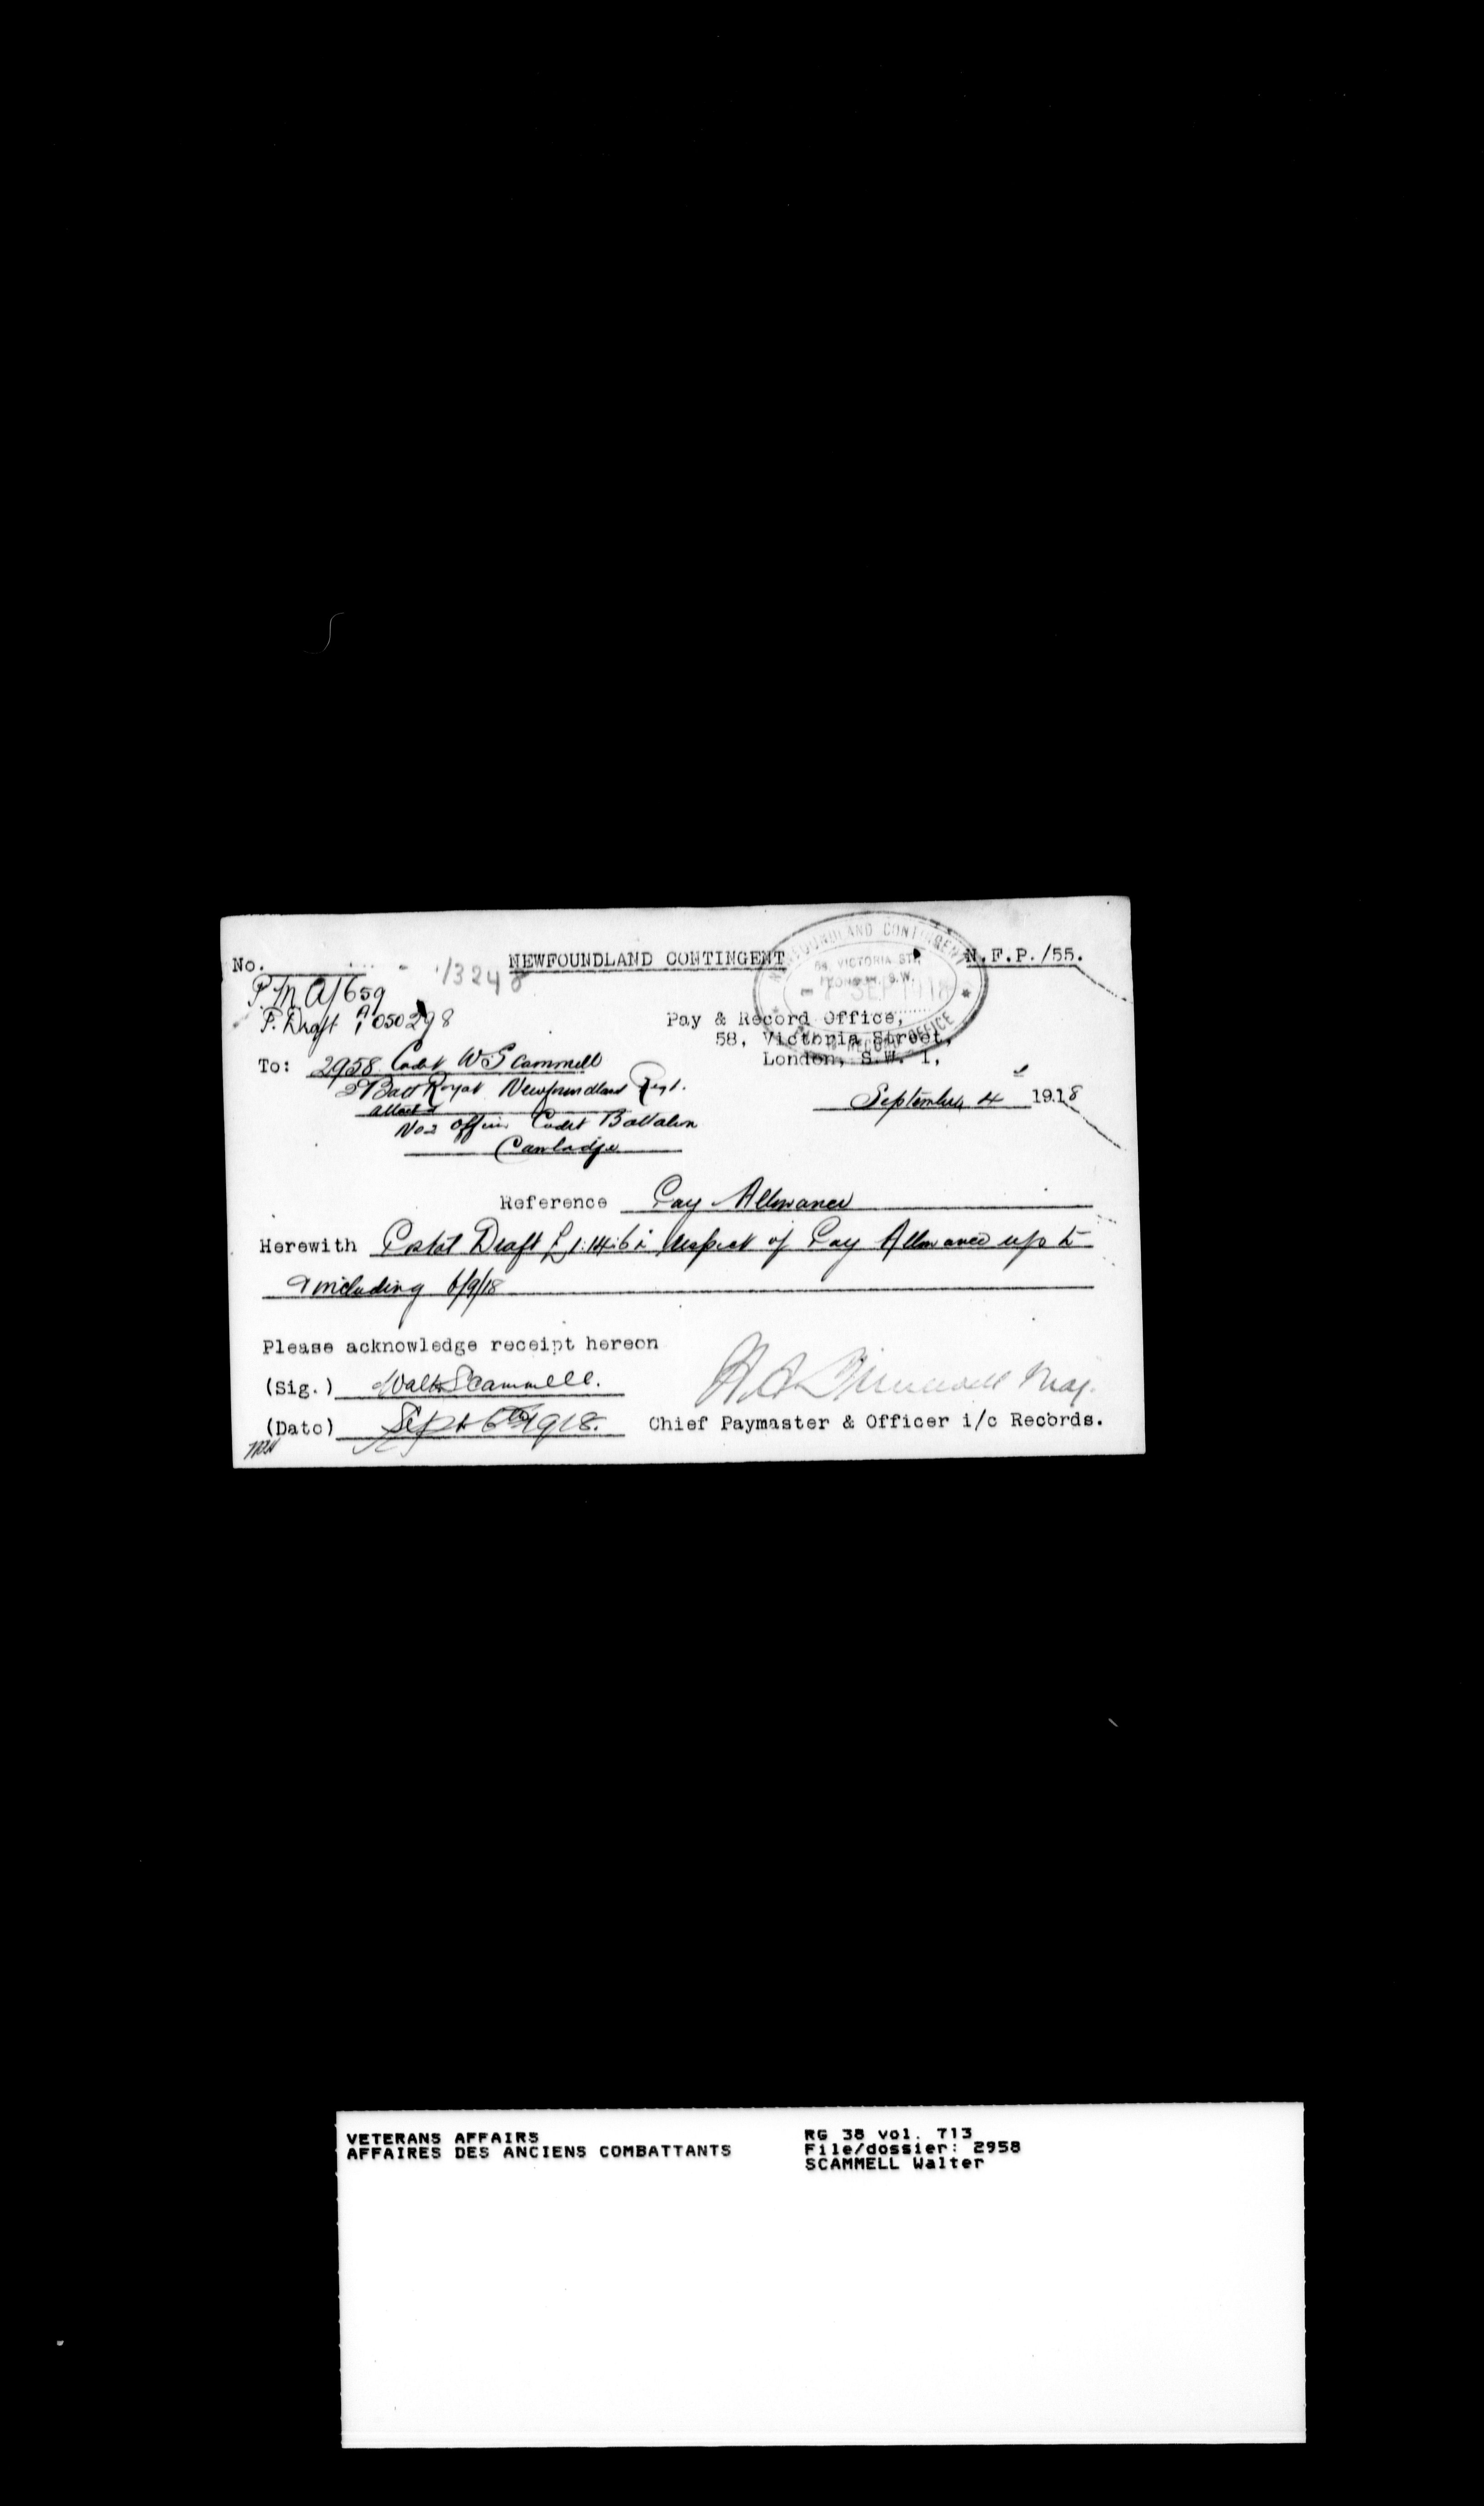 NEWFOUNDLAND CONTINGENT
N.F.P./55.
No.
13248
P.M.A/659
P. Draft A 050298
NEWFOUNDLAND CONTINGENT
58, VICTORIA STR.
LONDON, S.W.
- 7 SEP 1918
PAY & RECORD OFFICE
Pay & Record Office,
58, Victoria Street,
London, S.W. 1,
To: 2958 Cadet W Scammell
2 Batt Royal Newfoundland Regt.
attach'd
No 2 Officer Cadet Battalion
Cambridge
September 4 1918
Reference Pay Allowance
Herewith Postal Draft £1:14:6 in respect of Pay Allowance up to
& including 6/9/18
Please acknowledge receipt hereon
(Sig.) Walt Scammell.
(Date) Sept 6th 1918.
Maj.
Chief Paymaster & Officer i/c Records.
VETERANS AFFAIRS
AFFAIRES DES ANCIENS COMBATTANTS
RG 38 vol. 713
File/dossier: 2958
SCAMMELL Walter